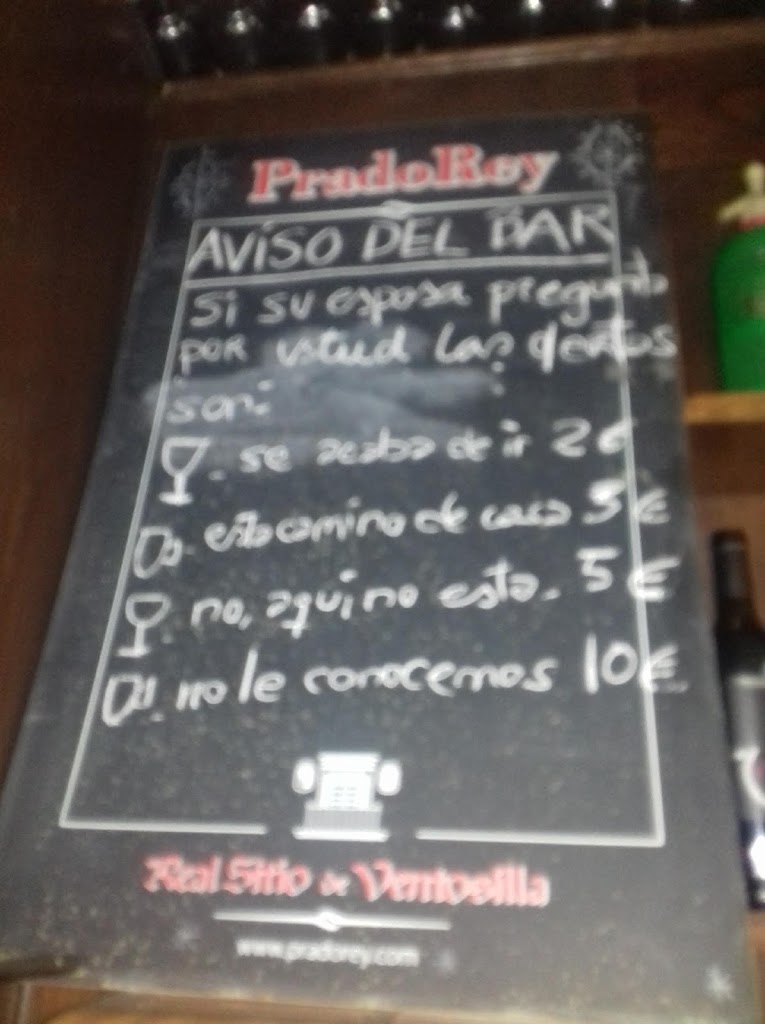 PradoRey
AVISO DEL BAR
Si su esposa pregunta
por usted las ofertas
son:
se acaba de ir 2€
esta camino de casa 3€
no, aqui no esta. 5€
no le conocemos 10€
Real Sitio de Ventosilla
www.pradorey.com